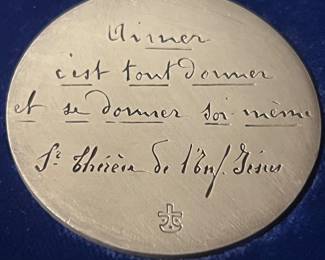 Aimer
c'est tout donner
et se donner soi même
Ste Thérèse de l'Enf Jésus